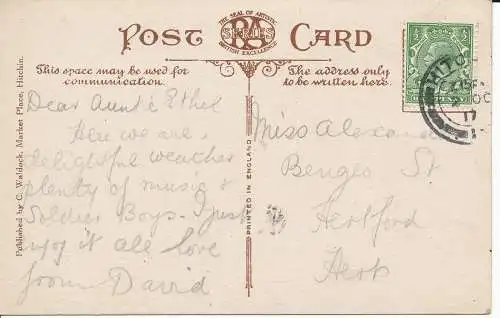 THE SEAL OF ARTISTIC
RA
SERIES
BRITISH EXCELLENCE
POST CARD
This space may be used for
communication.
The address only
to be written here.
Published by C. Waldock, Market Place, Hitchin.
PRINTED IN ENGLAND
Dear Auntie Ethel
Here we are
delightful weather
plenty of music &
Soldier Boys. I just
njoy it all love
from David
Miss Alexand
Benges St
Hertford
Herts
HITCH
OC
17